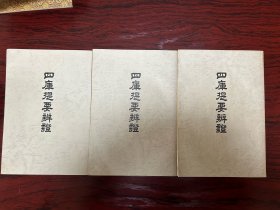 四庫提要辨證
四庫提要辨證
四庫提要辨證